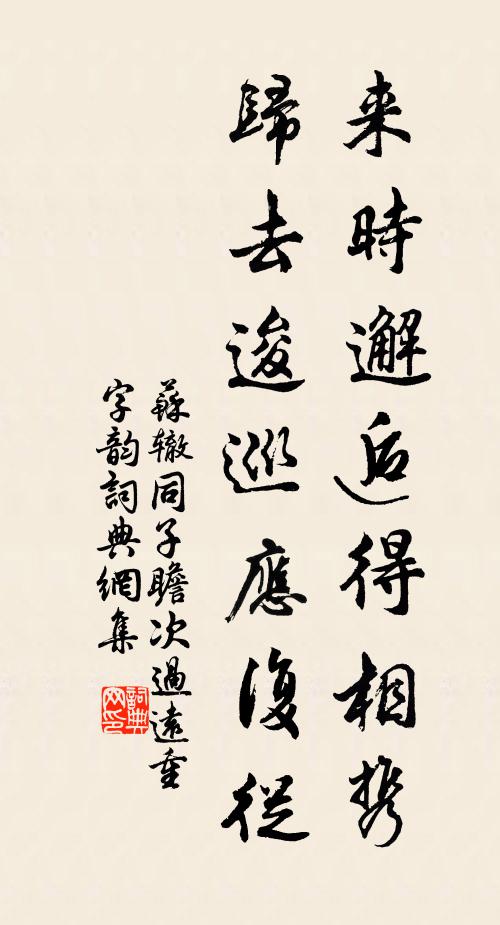 来時邂逅得相携
歸去逡巡應復從
蘇辙同子瞻次過遠重
字韵詞典網集
詞典网印